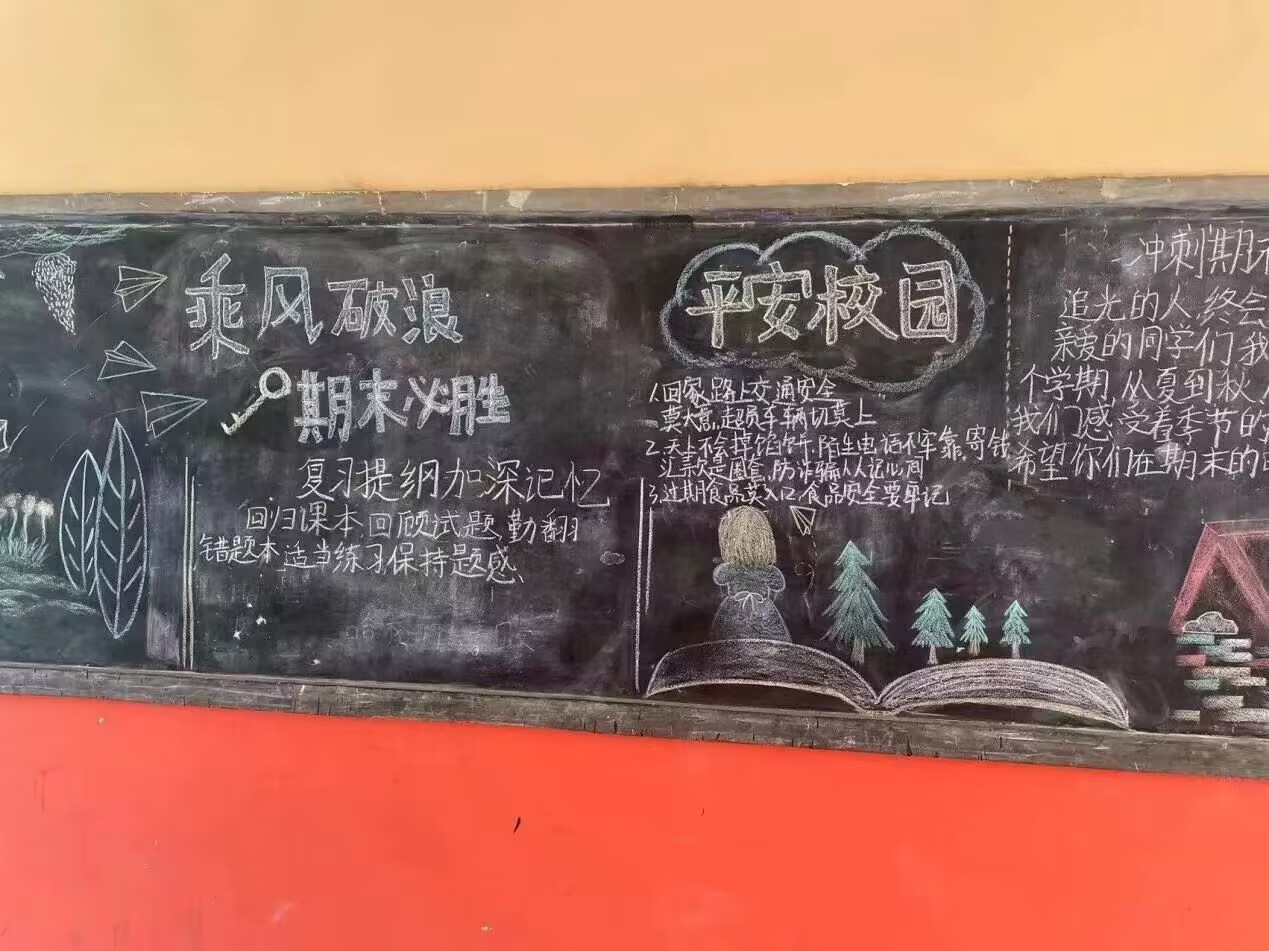 乘风破浪
期末必胜
复习提纲加深记忆
回归课本回顾试题、勤翻
错题本适当练习保持题感、
平安校园
1回家路上交通安全
莫大意,超员车辆切莫上
2.天上不会掉馅饼,陌生电话不牢靠,寄钱
汇款是圈套,防诈骗人人记心间
3,过期食品莫入口,食品安全要牢记
冲刺期末
追光的人,终会
亲爱的同学们我
个学期,从夏到秋
我们感受着季节的
希望你们在期末的